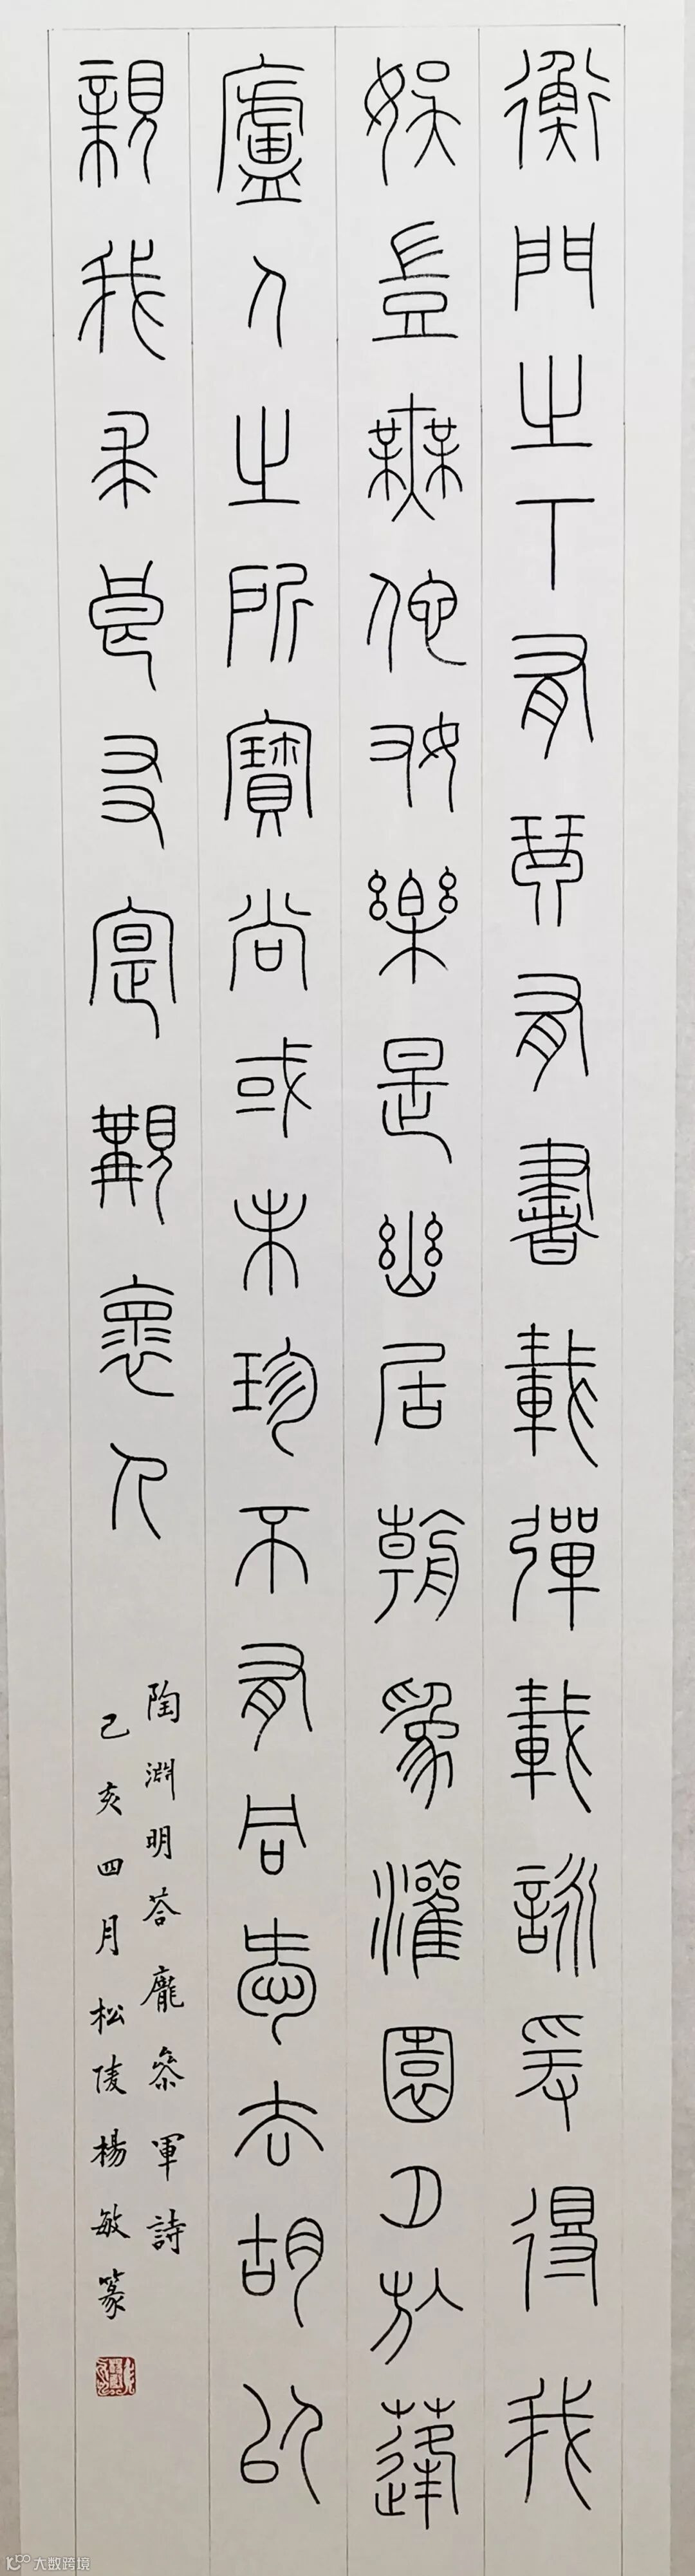 衡門之下有琴有書載彈載詠爰得我
娛豈無他好樂是幽居朝為灌園夕偃蓬
廬人之所寶尚或未珍不有同愛云胡以
親我求良友寔覯懷人
陶淵明荅龐參軍詩
己亥四月松陵楊敏篆
大数跨境